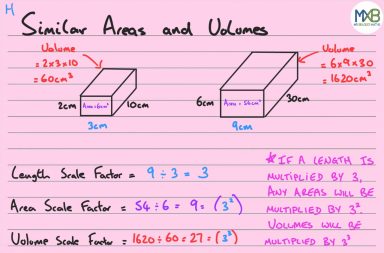 H
Similar Areas and Volumes
MXB
Volume
= 2×3×10
= 60cm³
2cm
Area = 6cm²
10cm
3cm
Volume
= 6×9×30
= 1620cm³
6cm
Area = 54cm²
30cm
9cm
Length Scale Factor = 9 ÷ 3 = 3
Area Scale Factor = 54 ÷ 6 = 9 = (3²)
Volume Scale Factor = 1620 ÷ 60 = 27 = (3³)
* IF A LENGTH IS
MULTIPLIED BY 3,
ANY AREAS WILL BE
MULTIPLIED BY 3².
VOLUMES WILL BE
MULTIPLIED BY 3³